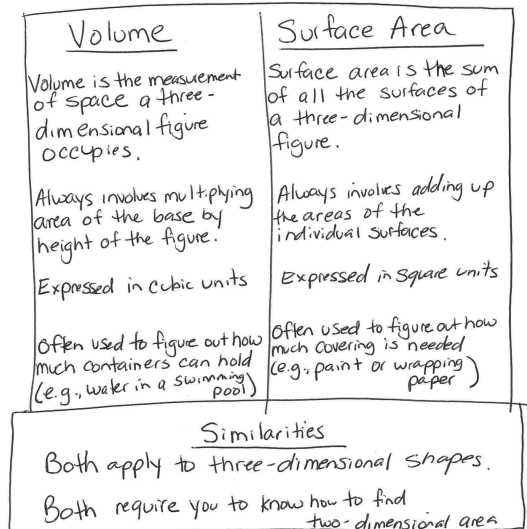 Volume
Volume is the measurement
of space a three-
dimensional figure
occupies.
Always involves multiplying
area of the base by
height of the figure.
Expressed in cubic units
Often used to figure out how
much containers can hold
(e.g., water in a swimming
pool)
Surface Area
Surface area is the sum
of all the surfaces of
a three-dimensional
figure.
Always involves adding up
the areas of the
individual surfaces.
Expressed in square units
Often used to figure out how
much covering is needed
(e.g., paint or wrapping
paper)
Similarities
Both apply to three-dimensional shapes.
Both require you to know how to find
two-dimensional area